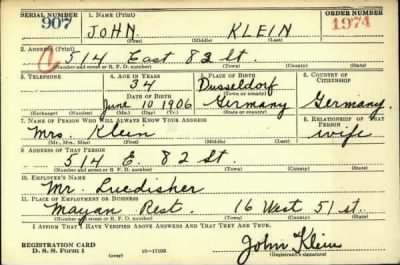 SERIAL NUMBER 1. NAME (Print) ORDER NUMBER
907 JOHN KLEIN 1974
(First) (Middle) (Last)
2. ADDRESS (Print)
514 East 82 St.
(Number and street or R. F. D. number) (Town) (County) (State)
3. TELEPHONE 4. AGE IN YEARS 5. PLACE OF BIRTH 6. COUNTRY OF CITIZENSHIP
34 Dusseldorf
DATE OF BIRTH (Town or county)
June 10 1906 Germany Germany.
(Exchange) (Number) (Mo.) (Day) (Yr.) (State or country)
7. NAME OF PERSON WHO WILL ALWAYS KNOW YOUR ADDRESS 8. RELATIONSHIP OF THAT PERSON
Mrs. Klein wife
(Mr., Mrs., Miss) (First) (Middle) (Last)
9. ADDRESS OF THAT PERSON
514 E. 82 St.
(Number and street or R. F. D. number) (Town) (County) (State)
10. EMPLOYER'S NAME
Mr. Luedisher
11. PLACE OF EMPLOYMENT OR BUSINESS
Mayan Rest. 16 West 51 st.
(Number and street or R. F. D. number) (Town) (County) (State)
I AFFIRM THAT I HAVE VERIFIED ABOVE ANSWERS AND THAT THEY ARE TRUE.
REGISTRATION CARD
D. S. S. Form 1 16—17105 John Klein
(Registrant's signature)